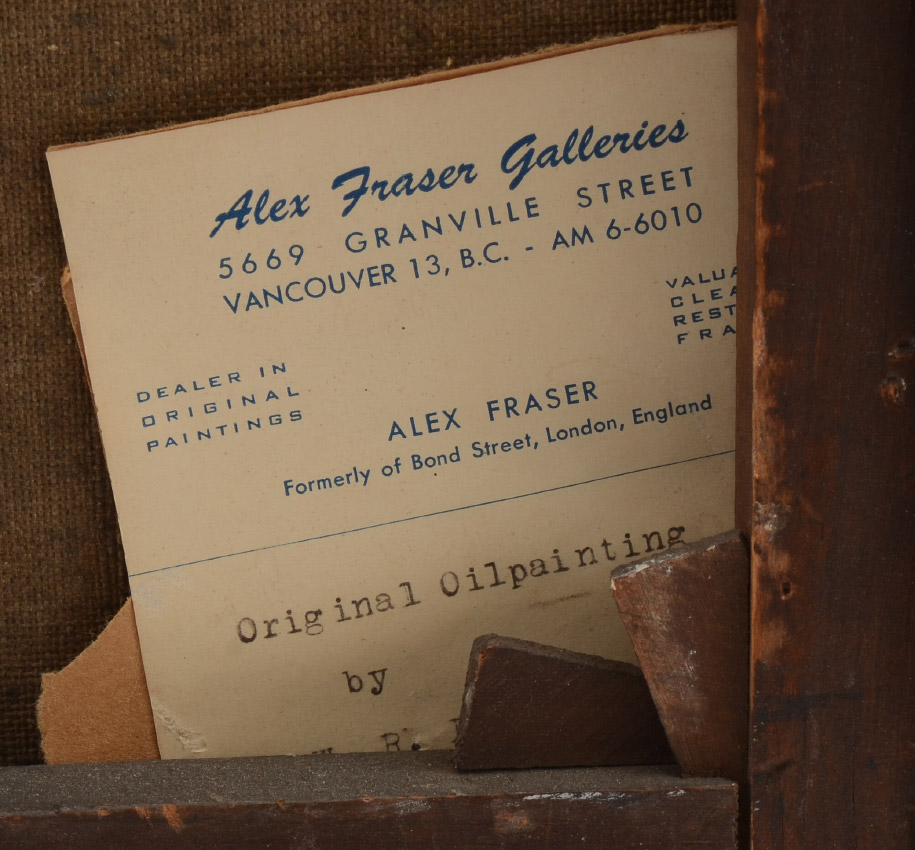 Alex Fraser Galleries
5669 GRANVILLE STREET
VANCOUVER 13, B.C. - AM 6-6010
DEALER IN
ORIGINAL
PAINTINGS
ALEX FRASER
Formerly of Bond Street, London, England
Original Oilpainting
by
R.